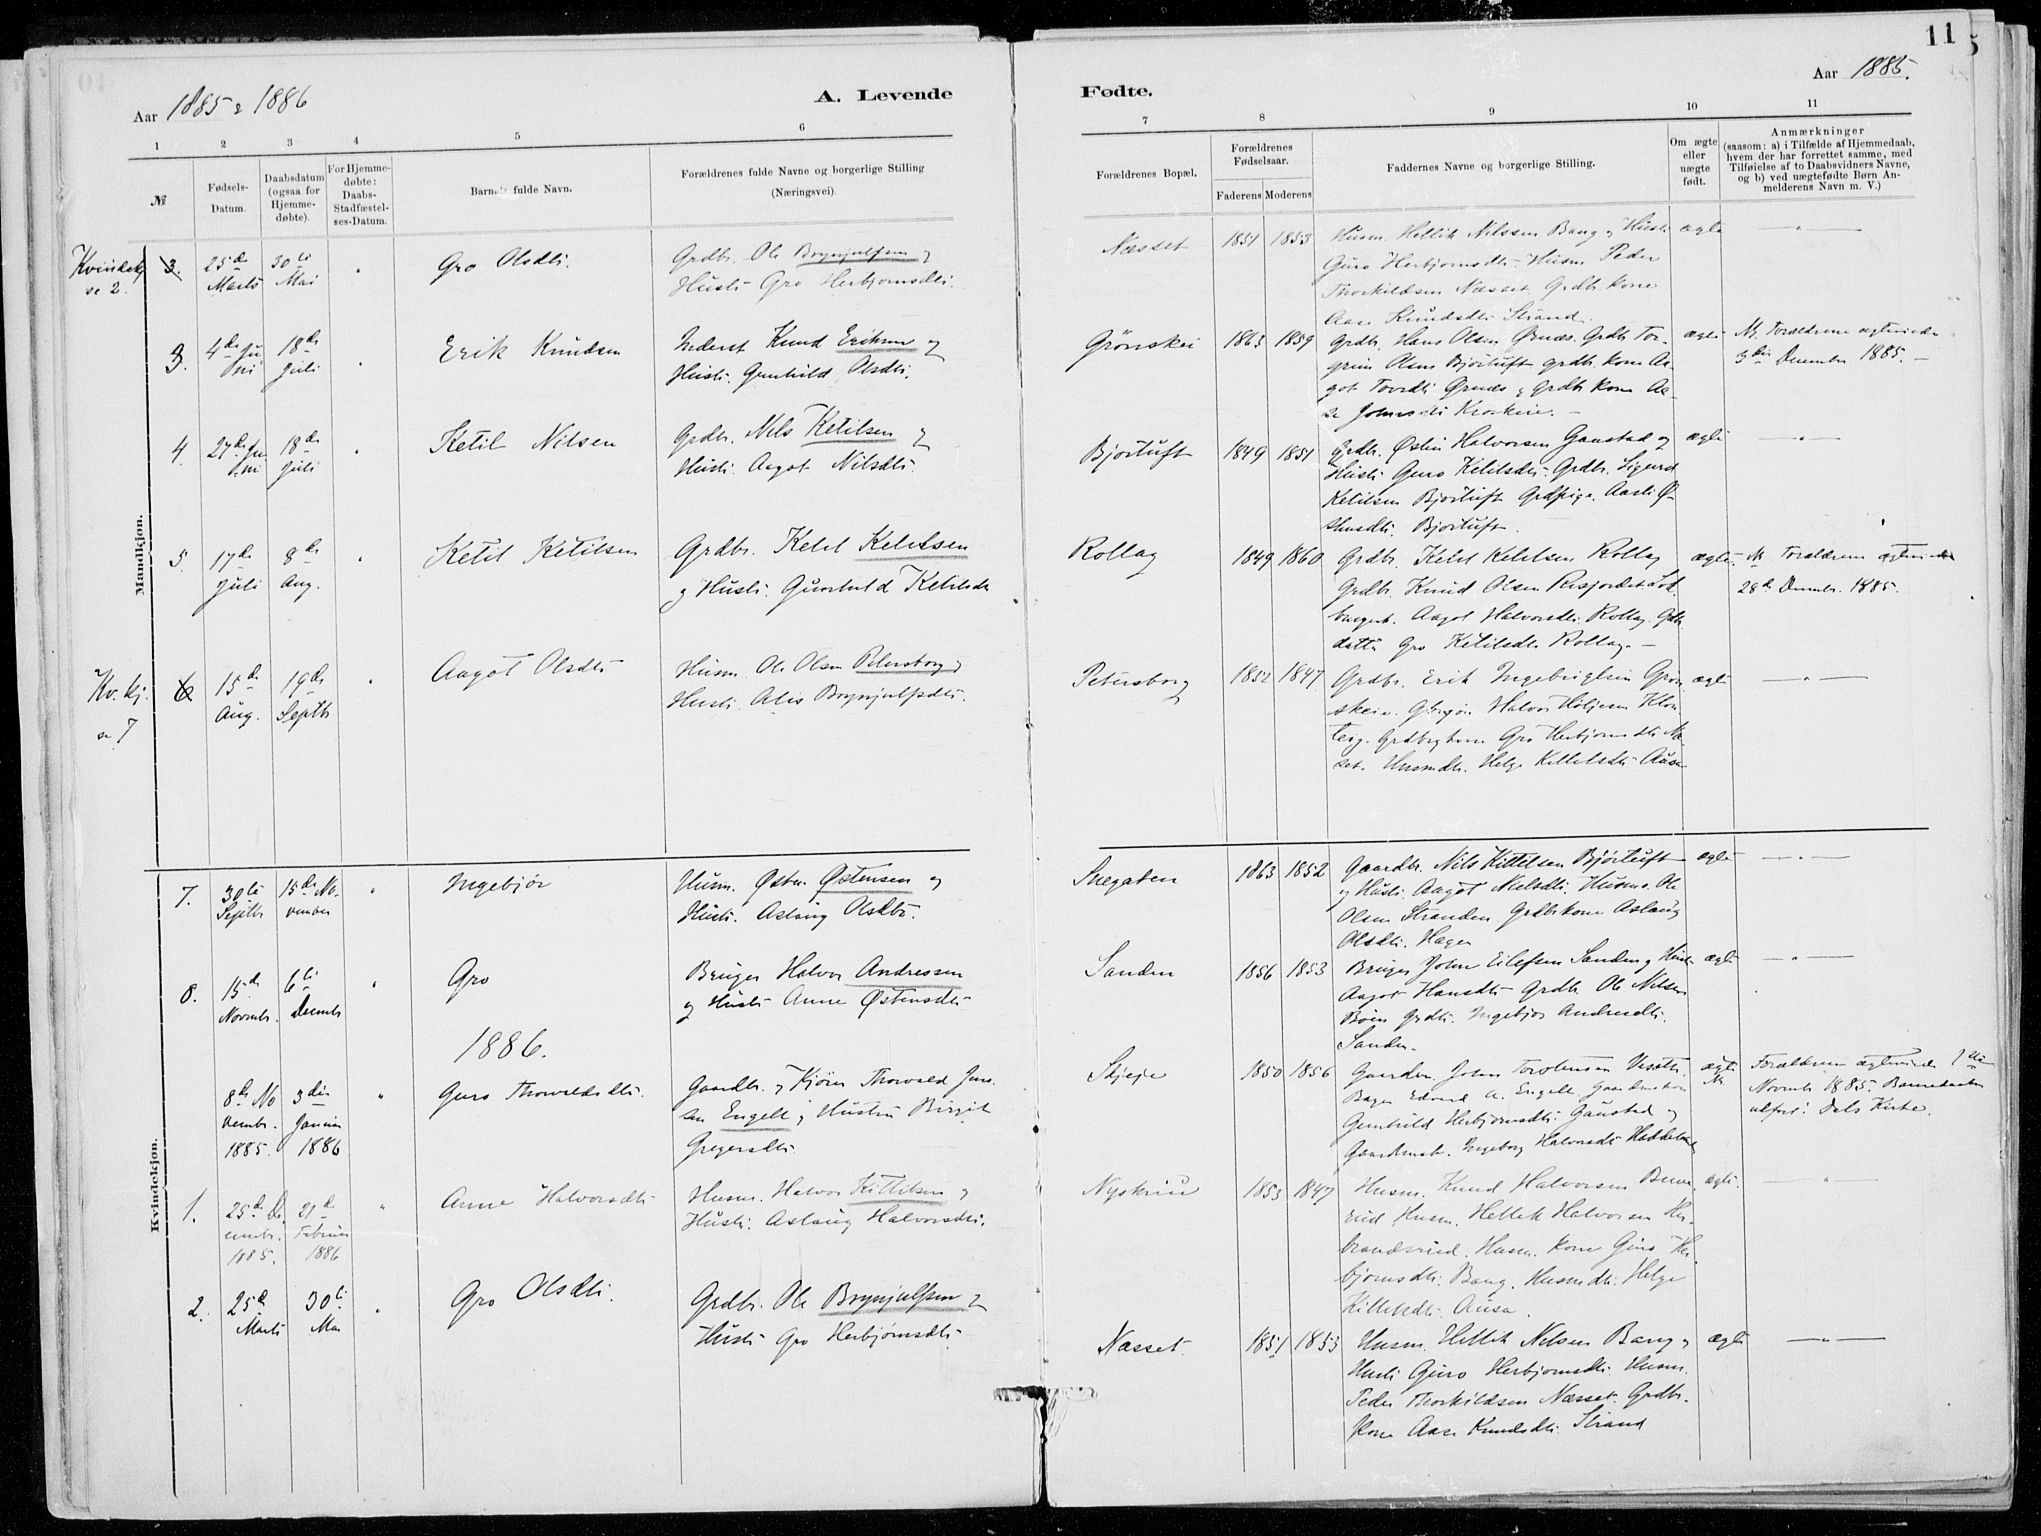 11
Aar 1885 & 1886
A. Levende
Fødte.
Aar 1885.
1 2 3 4 5 6 7 8 9 10 11
№
Fødsels-
Datum.
Daabsdatum
(ogsaa for
Hjemme-
døbte).
For Hjemme-
døbte:
Daabs-
Stadfæstel-
ses-Datum.
Barnets fulde Navn.
Forældrenes fulde Navne og borgerlige Stilling
(Næringsvei).
Forældrenes Bopæl.
Forældrenes
Fødselsaar.
Faderens Moderens
Faddernes Navne og borgerlige Stilling.
Om ægte
eller
uægte
født.
Anmærkninger
(saasom: a) i Tilfælde af Hjemmedaab,
hvem der har forrettet samme, med
Tilføielse af to Daabsvidners Navne,
og b) ved uægtefødte Børn An-
melderens Navn m. V.)
Mandkjøn.
Kvindekj.
se 2.
3.
25de
Marts
30te
Mai
Gro Olsdtr.
Grdbr. Ole Brynjulfsen og
Hustr. Gro Herbjørnsdtr.
Næsset
1851 1853
Husm. Hellik Nilssen Bang og Hustr
Guro Herbjørnsdtr. Husm Peder
Thorkildsen Næsset. Grdbr. kone
Aase Knudsdtr. Strand.
ægte
3.
4de Ju-
ni
18de
Juli
Erik Knudsen
Inderst Knud Eriksen og
Hustr. Gunhild Olsdtr.
Grönskei
1863 1859
Grdbr. Hans Olsen Ørnæs. Grdbr. Tor-
grim Olsen Bjørtuft grdbr. kone Aa-
got Tovsdtr Ørnæs og grdbr kone Aa-
se Johnsdtr Kroskeie.
ægte
Forældrene ægteviede
3die December 1885.
4.
27de Ju-
ni
18de
Juli
Ketil Nilsen
Grdbr. Nils Ketilsen og
Hustr. Aagot Nilsdtr.
Bjørtuft
1849 1851
Grdbr. Østen Halvorsen Gaustad og
Hustr. Guro Ketilsdtr. Grdbr. Sigurd
Ketilsen Bjørtuft Grdpige. Aaste Ø-
Bjørtuft.
ægte
5.
17de
Juli
8de
Aug.
Ketil Ketilsen
Grdbr. Ketil Ketilsen
og Hustr. Gunhild Ketilsdtr
Rollag
1849 1860
Grdbr. Ketil Ketilsen Rollag
Grdbr. Knud Olsen
Aagot Halvorsdtr. Rollag. Grdbr.
datter Gro Ketilsdtr Rollag.
ægte
Forældrene ægteviede
28de Decembr. 1885.
Kv. kj.
se 7
6
15de
Aug.
19de
Septbr
Aagot Olsdtr
Husm. Ole Olsen Petersborg og
Hustr. Brynjulfsdtr.
Petersborg
1852 1847
Grdbr. Erik Ingebrigtsen Grön-
skeie. Halvor

Gro Herbjørnsdtr Næ-
set. Husmdtr. Helge Killelsdtr Ausa
ægte
Kvindekjøn.
7.
30te
Septbr
15de No-
vember
Ingebjør
Husm. Østen Østensen og
Hustr. Aslaug Olsdtr.
Snegaten
1863 1852
Gaardbr. Nils Kittilsen Bjørtuft
og Hustr. Aagot Nielsdtr. Husm. Ole
Olsen Stranden Grdbrkone Aslaug
Olsdtr. Hagen
ægte
8.
15de
Novmbr.
6te
Decembr
Gro
Bruger Halvor Andressen
og Hustr Anne Østensdtr
Sanden
1856 1853
Bruger John Eilefsen Sanden og Hustr
Aagot Hansdtr Grdbr. Ole Nilsen
Bøen Grdtr. Ingebjør Andresdtr.
Sanden.
ægte
1886.
8de No-
vembr.
1885.
3die
Januar
1886
Guro Thorvaldsdtr.
Gaardbr. og Thorvald Jens-
sen Engell og Hustru Birgit
Gregersdtr.
Skjeje
1850 1856
John Torstensen
Edvard A. Engell
Gunhild Herbjørnsdtr. Gaustad og
Ingeborg Halvorsdtr
ægte
Forældrene ægteviede
Novmbr 1885.
Dals Kirke.
1.
25de De-
cembr.
1885.
21de
Februar
1886
Anne Halvorsdtr
Husm. Halvor Kittilsen og
Hustr. Aslaug Halvorsdtr.
1853 1847
Husm. Knud Halvorsen
Husm. Hellek Halvorsen Her-
brandsrud. Husm. kone Guro Her-
bjørnsdtr. Bang. Husmdtr. Helge
Killelsdtr. Ausa.
ægte
2.
25de
Marts
30te
Mai
Gro Olsdtr.
Grdbr. Ole Brynjulfsen og
Hustr Gro Herbjørnsdtr
Næsset.
1851 1853
Husm. Hellek Nilsen Bang og
Hustr Guro Herbjørnsdtr. Husm.
Peder Thorkildsen Næsset. Grdbr.
Kone Aase Knudsdtr. Strand
ægte